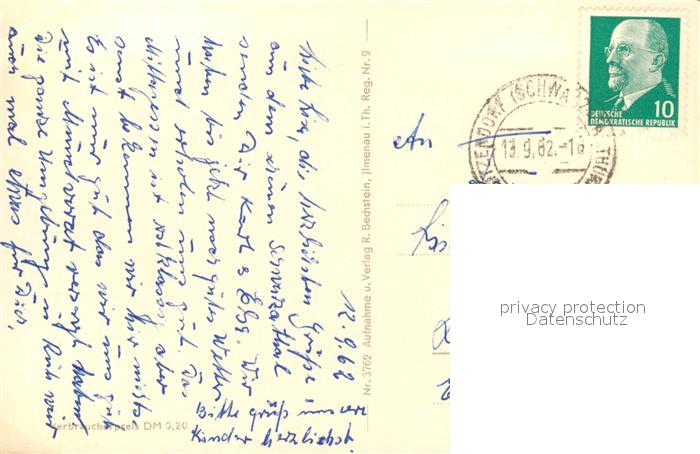 12.9.62
Liebe Lisa, die herzlichsten Grüße
aus dem schönen Schwarzathal
senden Dir Karl u. Elbg. Wir
haben bis jetzt noch gutes Wetter
und erholen uns gut. Das
Mittagessen ist erstklassig, aber
sonst bekommen wir hier nichts.
Es ist nur gut das wir uns gut
mit Mundvorrat versorgt haben
Die ganze Umgebung u. Ruhe wär
auch mal etwas für Dich.
Bitte grüß unsere
Kinder herzlichst.
Verbraucherpreis DM 0,20
Nr. 3762 Aufnahme u. Verlag R. Bechstein, Jlmenau i. Th. Reg. Nr. 9
An
DEUTSCHE
DEMOKRATISCHE REPUBLIK
10
13.9.62.-18
privacy protection
Datenschutz